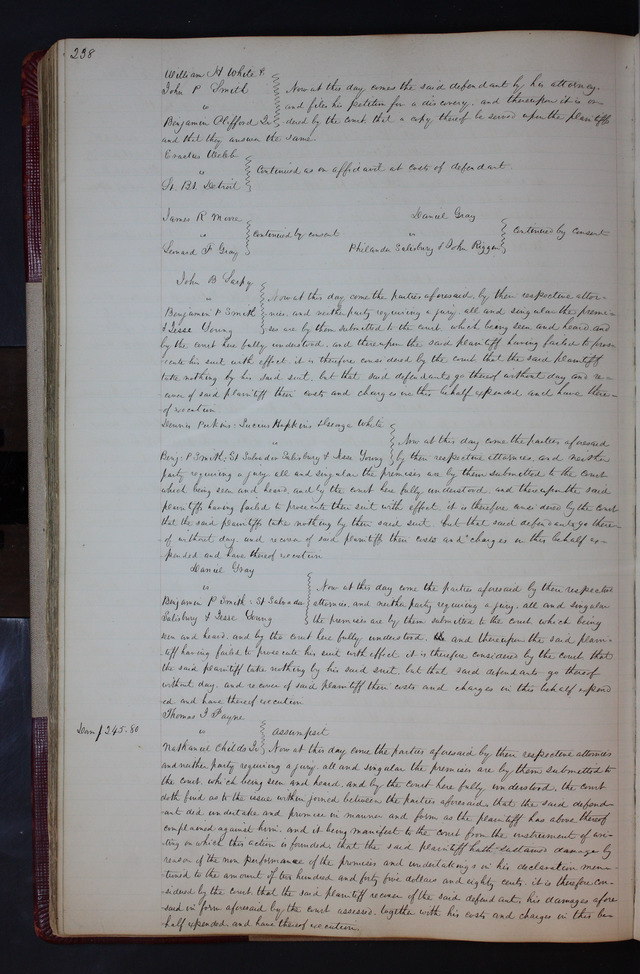 238
William H White &
John P Smith
vs
Benjamin Clifford Jr
Now at this day comes the said defendant by his attorney,
and files his petition for a discovery, and thereupon it is or-
dered by the court, that a copy thereof be served upon the plaintiffs
and that they answer the same.
Erastus Welch
vs
St. Bt. Detroit
Continued as on affidavit at costs of defendant.
James R Morse
vs
Leonard F Gray
continued by consent
Daniel Gray
vs
Philander Salisbury & John Riggen
continued by consent
John B Sarpy
vs
Benjamin P Smith
& Jesse Young
Now at this day come the parties aforesaid, by their respective attor-
nies, and neither party requiring a jury, all and singular the premi-
ses are by them submitted to the court which being seen and heard, and
by the court here fully understood, and thereupon the said plaintiff having failed to prose-
cute his suit with effect, it is therefore considered by the court that the said plaintiff
take nothing by his said suit, but that said defendants go thereof without day and re-
cover of said plaintiff their costs and charges in this behalf expended and have there-
of execution
Dennis Perkins, Lucius Hopkins & George White
vs
Benj. P Smith, St Salvador Salisbury & Jesse Young
Now at this day come the parties aforesaid
by their respective attornies, and neither
party requiring a jury, all and singular the premises are by them submitted to the court
which being seen and heard, and by the court here fully understood, and thereupon the said
plaintiffs having failed to prosecute their suit with effect, it is therefore considered by the court
that the said plaintiffs take nothing by their said suit, but that said defendants go there-
of without day, and recover of said plaintiffs their costs and charges in this behalf ex-
pended and have thereof execution
Daniel Gray
vs
Benjamin P Smith, St Salvador
Salisbury & Jesse Young
Now at this day come the parties aforesaid by their respective
attornies, and neither party requiring a jury, all and singular
the premises are by them submitted to the court which being
seen and heard, and by the court here fully understood, and thereupon the said plain-
tiff having failed to prosecute his suit with effect it is therefore considered by the court, that
the said plaintiff take nothing by his said suit, but that said defendants go thereof
without day, and recover of said plaintiff their costs and charges in this behalf expend-
ed and have thereof execution
Thomas J Payne
vs
Nathaniel Childs Jr
assumpsit
Dam $245.80
Now at this day come the parties aforesaid by their respective attornies
and neither party requiring a jury, all and singular the premises are by them submitted to
the court, which being seen and heard, and by the court here fully understood, the court
doth find as to the issue within joined between the parties aforesaid, that the said defend-
ant did undertake and promise in manner and form as the plaintiff has above thereof
complained against him, and it being manifest to the court from the instrument of wri-
ting on which this action is founded, that the said plaintiff hath sustained damage by
reason of the non performance of the promises and undertakings in his declaration men-
tioned to the amount of two hundred and forty five dollars and eighty cents, it is therefore con-
sidered by the court that the said plaintiff recover of the said defendant, his damages afore-
said in form aforesaid by the court assessed, together with his costs and charges in this be-
half expended and have thereof execution.